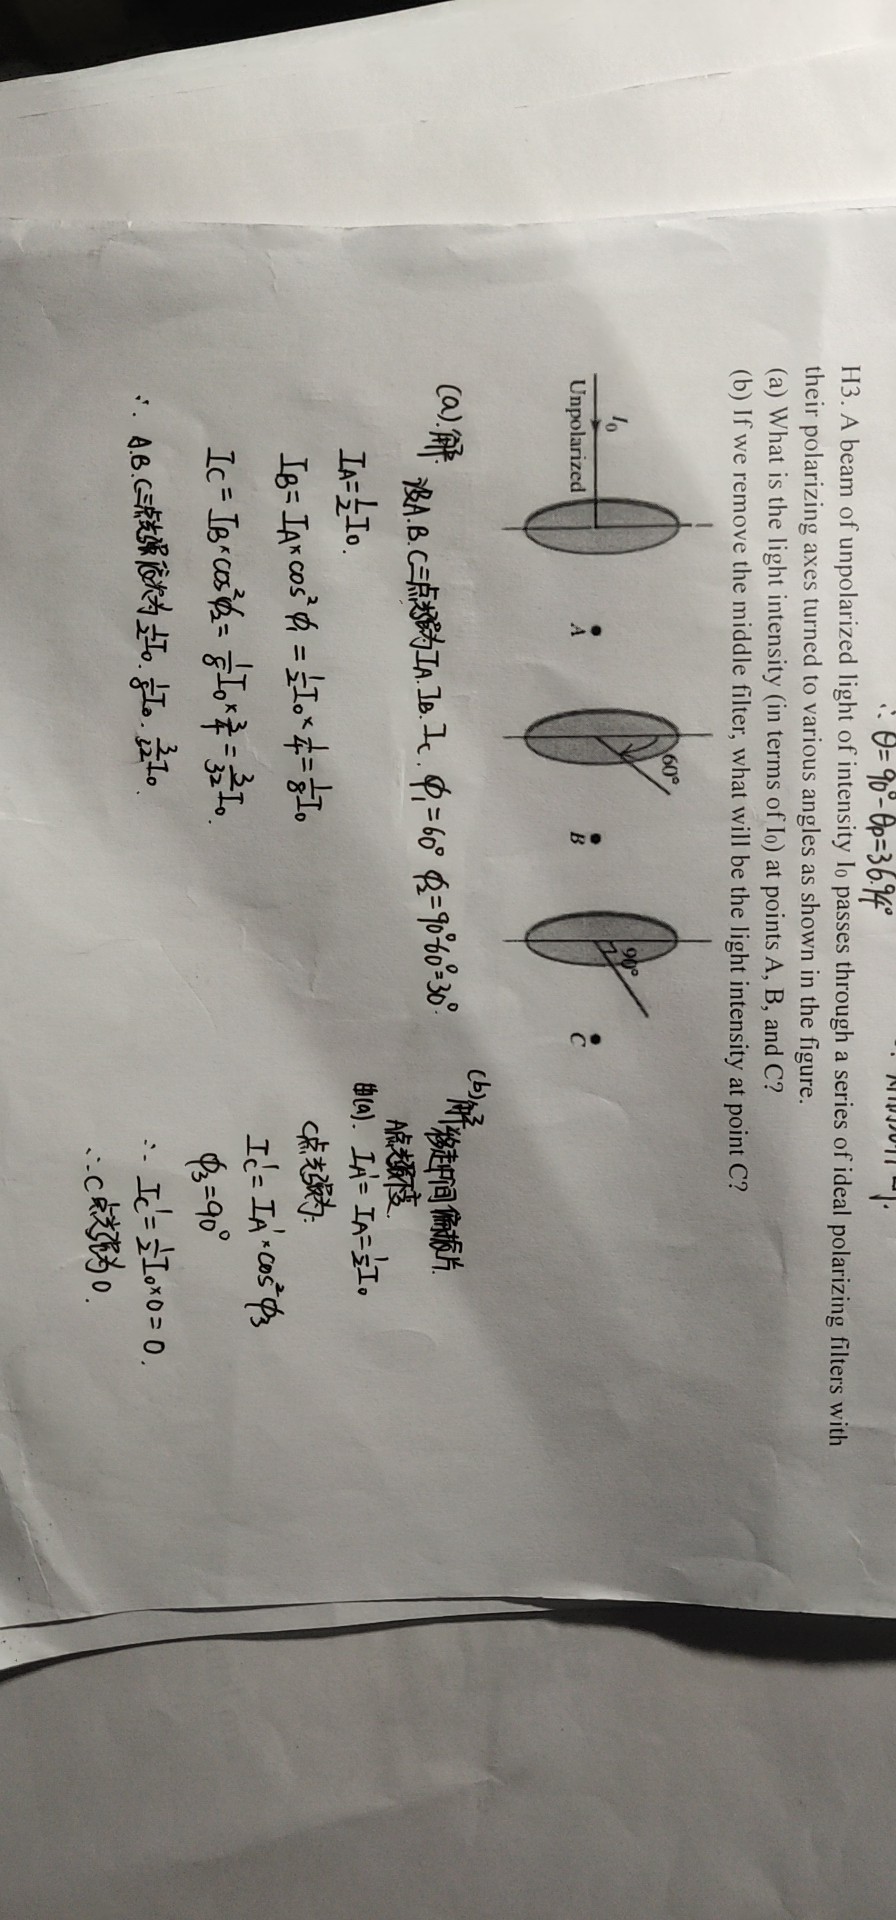 ∴ θ=90°-θp=36.94°
H3. A beam of unpolarized light of intensity I₀ passes through a series of ideal polarizing filters with
their polarizing axes turned to various angles as shown in the figure.
(a) What is the light intensity (in terms of I₀) at points A, B, and C?
(b) If we remove the middle filter, what will be the light intensity at point C?
I₀
Unpolarized
A
60°
B
90°
C
(a).解 设A.B.C三点光强为I_A.I_B.I_C. ϕ₁=60° ϕ₂=90°-60°=30°.
I_A=1/2 I₀.
I_B=I_A×cos²ϕ₁=1/2 I₀×1/4=1/8 I₀
I_C=I_B×cos²ϕ₂=1/8 I₀×3/4=3/32 I₀.
∴ A.B.C三点光强依次为1/2 I₀.1/8 I₀.3/32 I₀.
(b)解 移走中间偏振片.
A点光强度.
由(a). I_A'=I_A=1/2 I₀
C点光强为:
I_C'=I_A'×cos²ϕ₃
ϕ₃=90°
∴ I_C'=1/2 I₀×0=0.
∴C点光强为0.